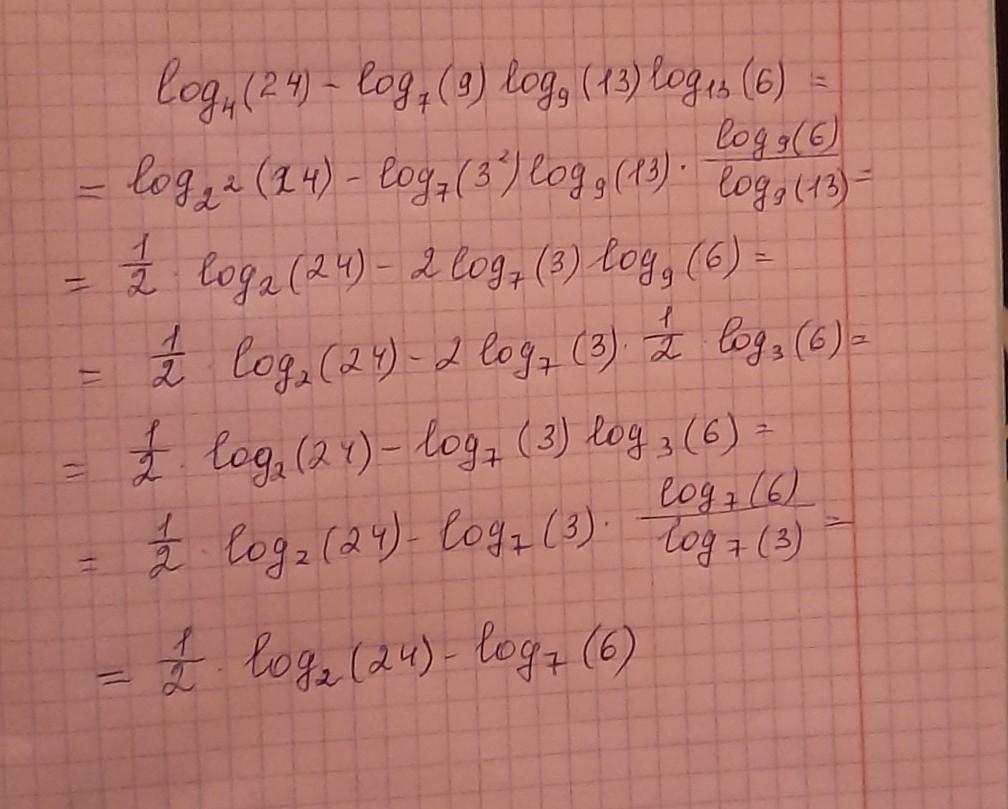 log₄(24) - log₇(9) log₉(13) log₁₃(6) =
= log₂²(24) - log₇(3²) log₉(13) · log₉(6)/log₉(13) =
= 1/2 · log₂(24) - 2 log₇(3) · log₉(6) =
= 1/2 · log₂(24) - 2 log₇(3) · 1/2 · log₃(6) =
= 1/2 · log₂(24) - log₇(3) log₃(6) =
= 1/2 · log₂(24) - log₇(3) · log₇(6)/log₇(3) =
= 1/2 · log₂(24) - log₇(6)